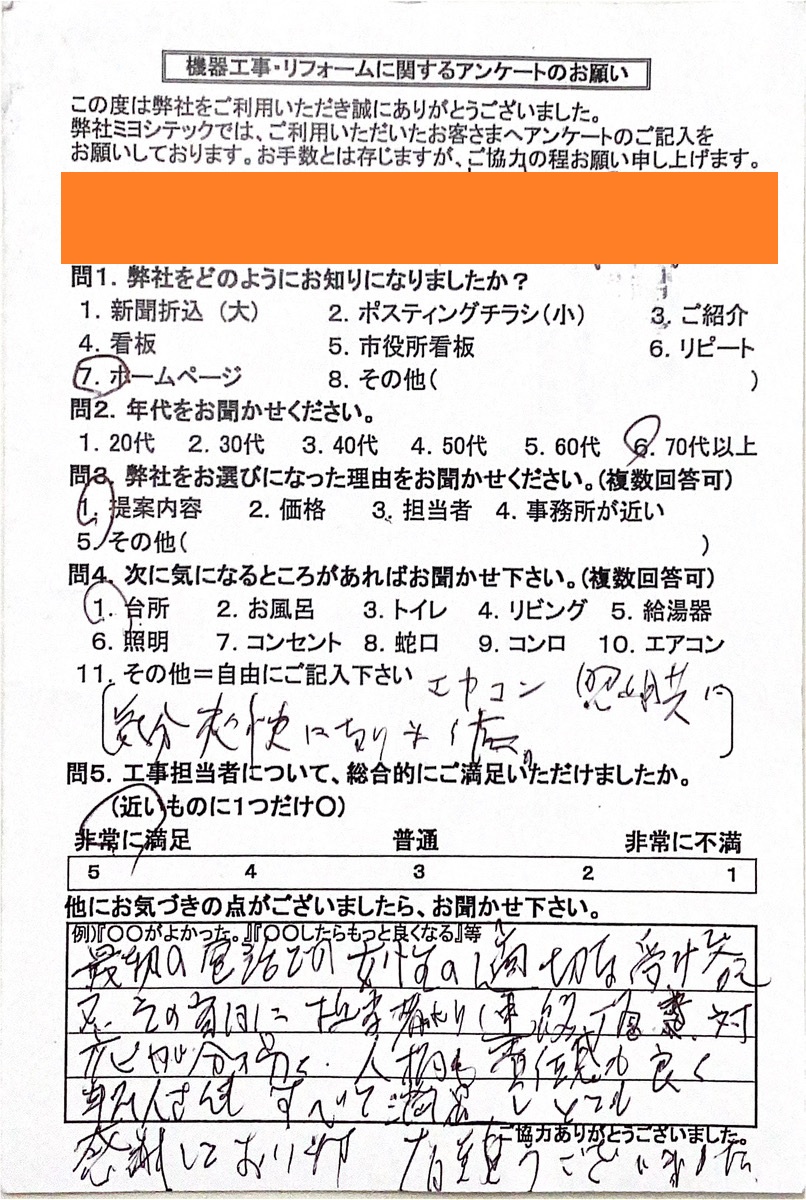 機器工事・リフォームに関するアンケートのお願い
この度は弊社をご利用いただき誠にありがとうございました。
弊社ミヨシテックでは、ご利用いただいたお客さまへアンケートのご記入を
お願いしております。お手数とは存じますが、ご協力の程お願い申し上げます。
問1. 弊社をどのようにお知りになりましたか？
1. 新聞折込（大） 2. ポスティングチラシ（小） 3. ご紹介
4. 看板 5. 市役所看板 6. リピート
7. ホームページ 8. その他( )
問2. 年代をお聞かせください。
1. 20代 2. 30代 3. 40代 4. 50代 5. 60代 6. 70代以上
問3. 弊社をお選びになった理由をお聞かせください。（複数回答可）
1. 提案内容 2. 価格 3. 担当者 4. 事務所が近い
5. その他( )
問4. 次に気になるところがあればお聞かせ下さい。（複数回答可）
1. 台所 2. お風呂 3. トイレ 4. リビング 5. 給湯器
6. 照明 7. コンセント 8. 蛇口 9. コンロ 10. エアコン
11. その他＝自由にご記入下さい エヤコン 照明共に
気分 になりました。
問5. 工事担当者について、総合的にご満足いただけましたか。
（近いものに1つだけ〇）
非常に満足 普通 非常に不満
5 4 3 2 1
他にお気づきの点がございましたら、お聞かせ下さい。
例）『〇〇がよかった。』『〇〇したらもっと良くなる』等
最初の電話での女性の適切な受け答え
又その翌日に担当者より連絡丁寧 対
応 人柄も 良く
すべて満足しとても
ご協力ありがとうございました。
感謝しております 有難うございました